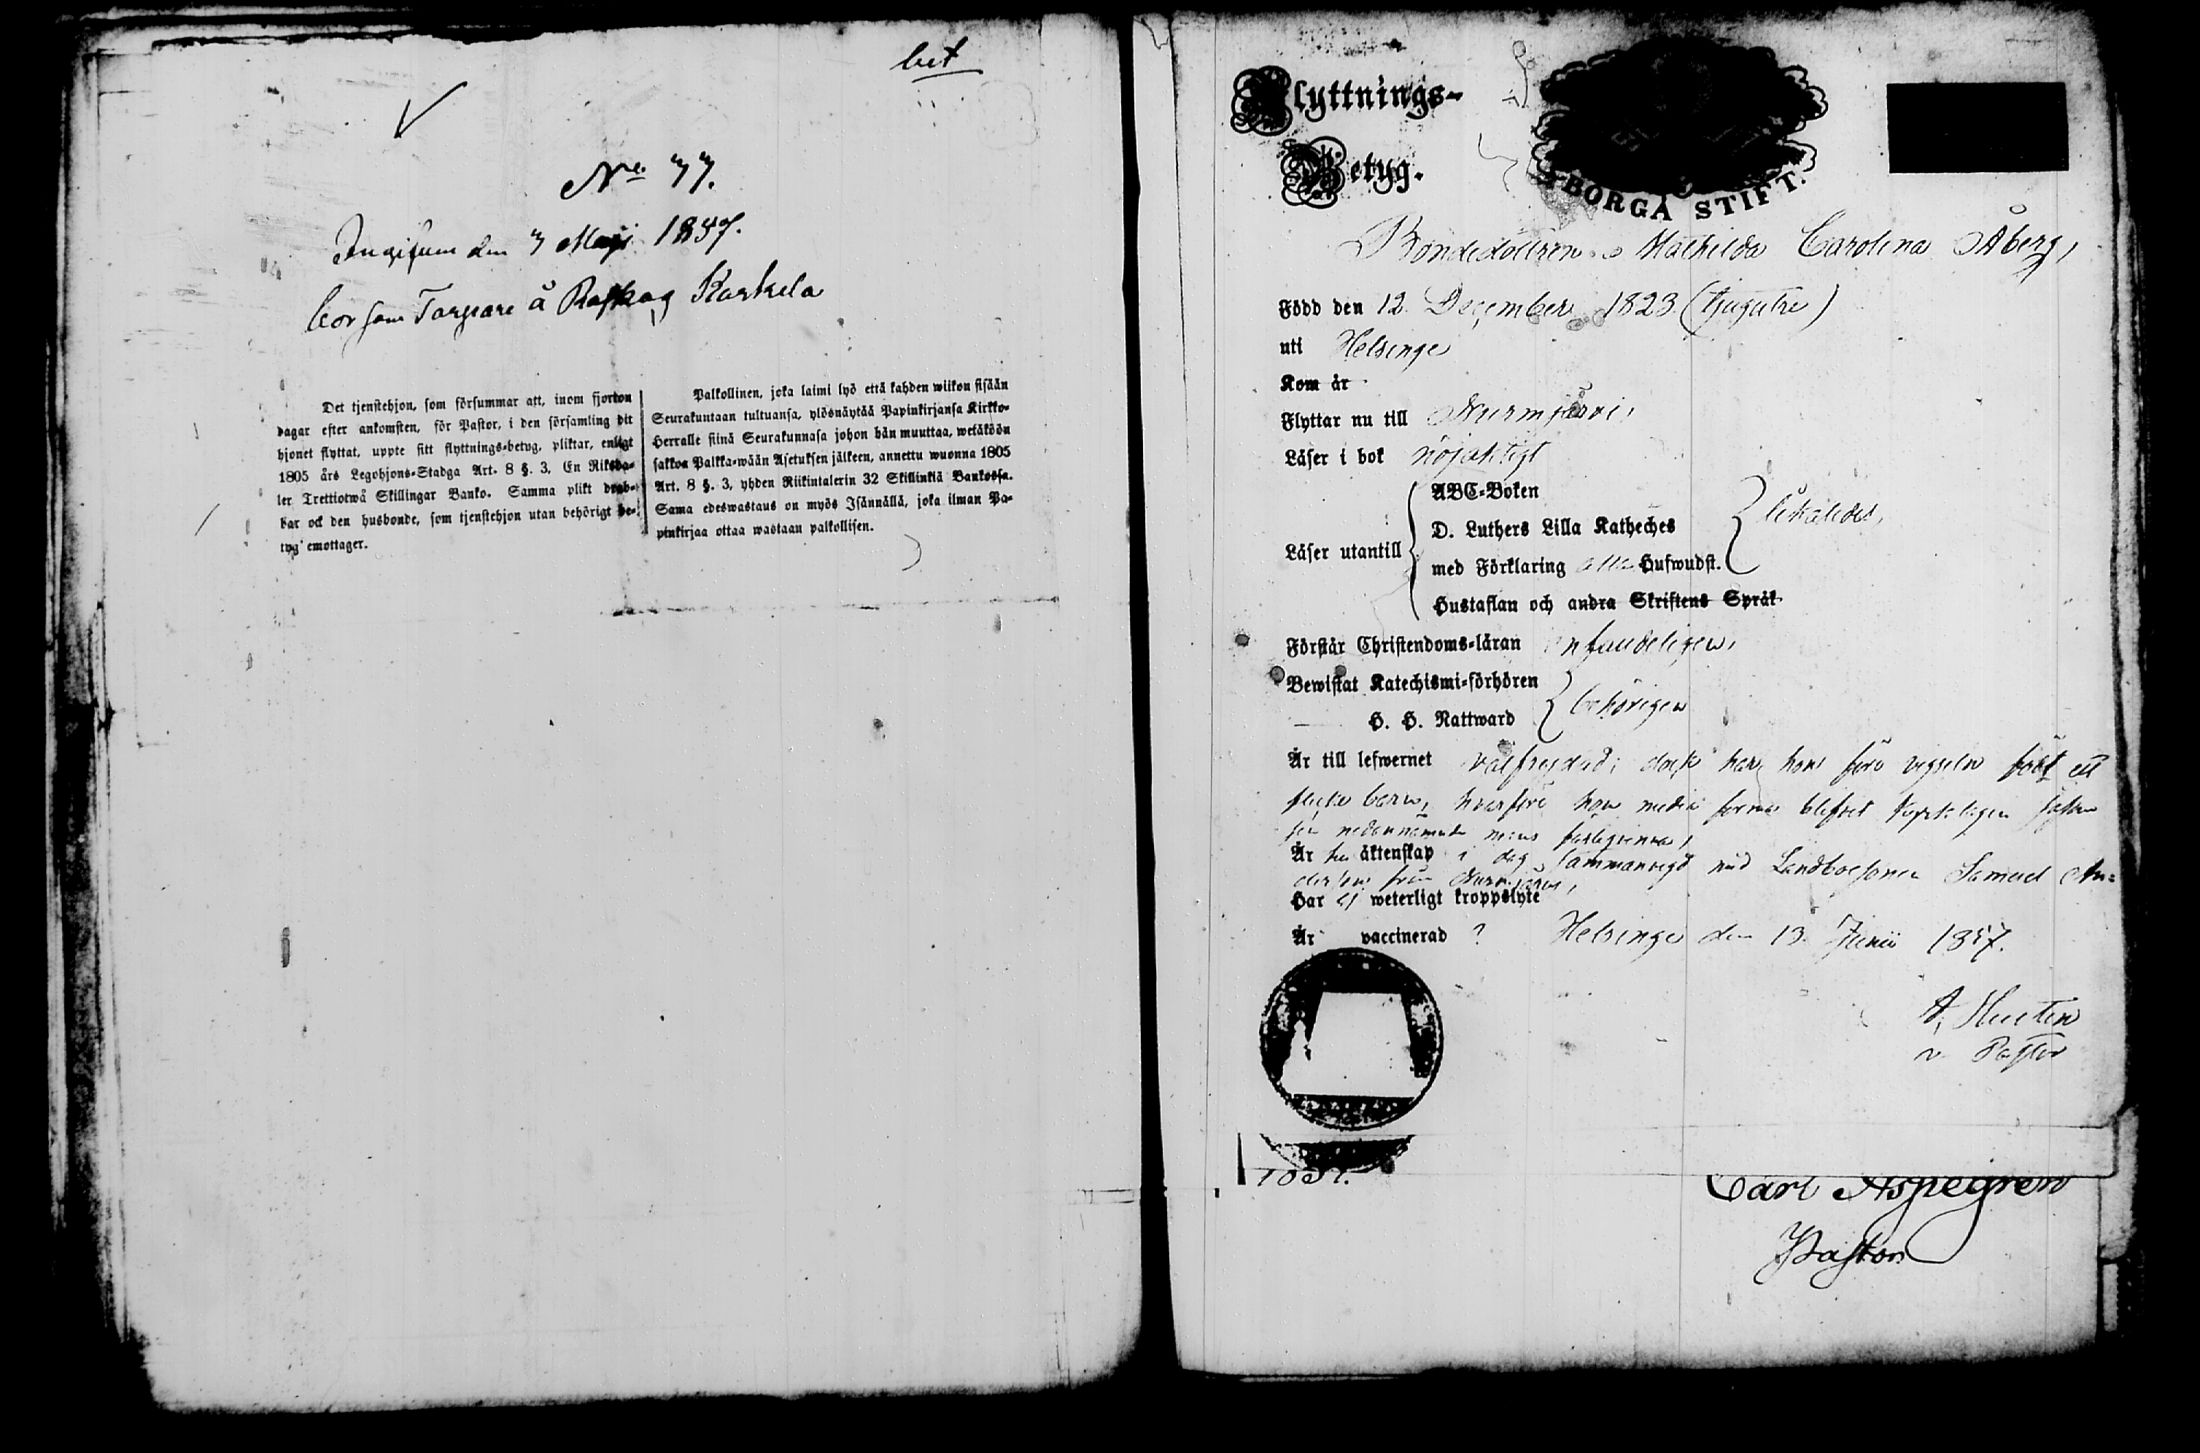 bet
No 77.
Ingifven den 7 Maji 1857.
bor som Torpare å Karhela
Det tjenstehjon, som försummar att, inom fjorton
dagar efter ankomsten, för Pastor, i den församling dit
hjonet flyttat, uppte sitt flyttnings-betyg, pliktar, enligt
1805 års Legohjons-Stadga Art. 8 §. 3, En Riksda-
ler Trettiotwå Skillingar Banko. Samma plikt drab-
bar ock den husbonde, som tjenstehjon utan behörigt be-
tyg emottager.
Palkollinen, joka laimi lyö että kahden wiikon sisään
Seurakuntaan tultuansa, ylösnäytää Papinkirjansa Kirkko-
Herralle siinä Seurakunnasa johon hän muuttaa, wetäköön
sakkoa Palkka-wään Asetuksen jälkeen, annettu wuonna 1805
Art. 8 §. 3, yhden Riikintalerin 32 Skillinkiä Bankossa.
Sama edeswastaus on myös Isännällä, joka ilman Pa-
pinkirjaa ottaa wastaan palkollisen.
Flyttnings-
Betyg.
BORGÅ STIFT.
Bondedottren Mathilda Carolina Åberg,
Född den 12 December 1823 (tjugutre)
uti Helsinge
Kom år
Flyttar nu till Nurmijärvi,
Läser i bok nöjaktigt
Läser utantill
ABC-Boken
D. Luthers Lilla Katheches
med Förklaring alla Hufwudst.
likaledes,
Hustaflan och andra Skriftens Språk
Förstår Christendoms-läran enfaldeligen,
Bewistat Katechismi-förhören
H. H. Nattward
behörigen
Är till lefwernet välfrejdad; dock har hon före vigseln födt ett
flicke barn, hvarföre hon
nedannämnde mans
Är äktenskap i dag sammanvigd med Landboesonen Samuel An=
dersson från Nurmijärvi,
Har ej weterligt kroppslyte
Är vaccinerad ? Helsinge den 13 Junii 1857.
A. Hustin
v. Pastor
Carl Aspegren
Pastor